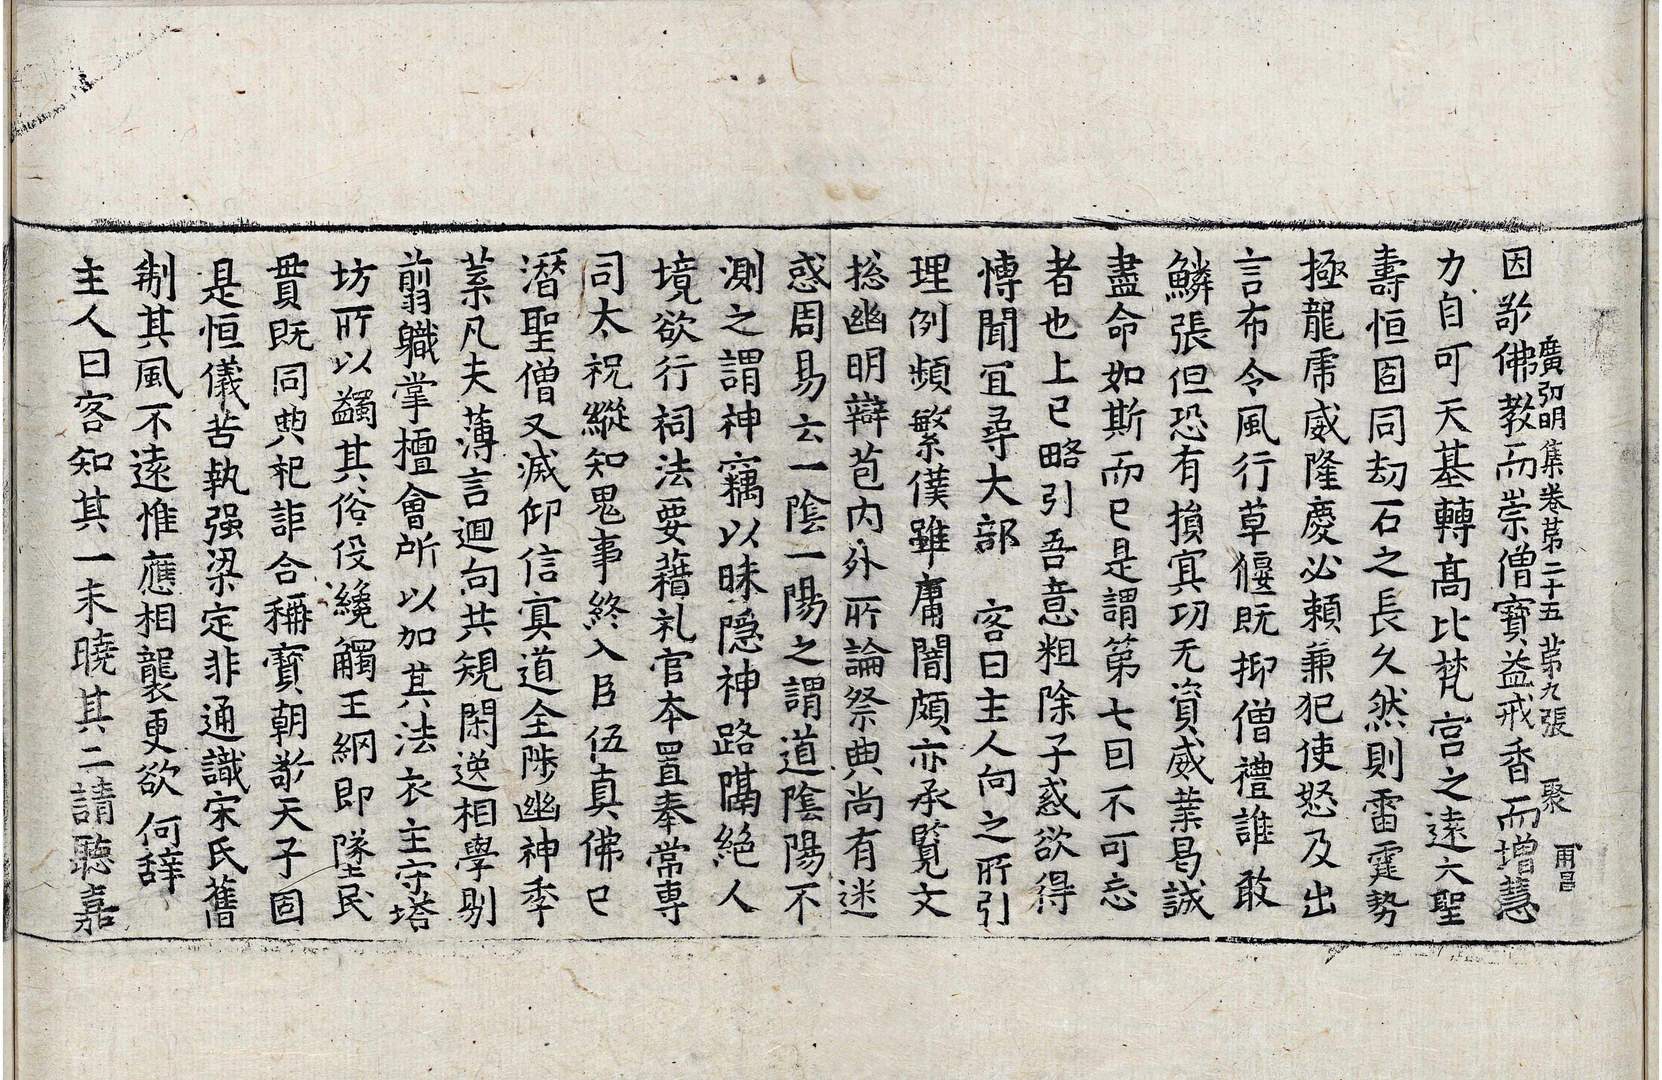 廣弘明集卷第二十五 苐九張 聚 甫昌
因敬佛教而崇僧寶益戒香而增慧
力自可天基轉髙比梵宫之遠大聖
壽恒固同劫石之長久然則雷霆勢
極龍虎威隆慶必頼兼犯使怒及出
言布令風行草偃既抑僧禮誰敢
鱗張但恐有損㝠功无資威業曷誠
盡命如斯而已是謂第七曰不可忘
者也上已略引吾意粗除子惑欲得
博聞冝尋大部 客曰主人向之所引
理例頻繁僕雖庸闇頗亦承覧文
捴幽明辯苞内外所論祭典尚有迷
惑周易云一陰一陽之謂道陰陽不
測之謂神竊以昧隠神路隔絶人
境欲行祠法要藉礼官本置奉常専
司太祝縱知鬼事終入臣伍真佛已
潛聖僧又滅仰信㝠道全陟幽神季
葉凡夫薄言迴向共規閑逸相學剔
翦職掌擅會所以加其法衣主守塔
坊所以蠲其俗役纔觸王網即墜民
貫既同典祀詎合稱寳朝敬天子固
是恒儀苦執强梁定非通識宋氏舊
制其風不遠惟應相襲更欲何辝
主人曰客知其一未曉其二請聽嘉